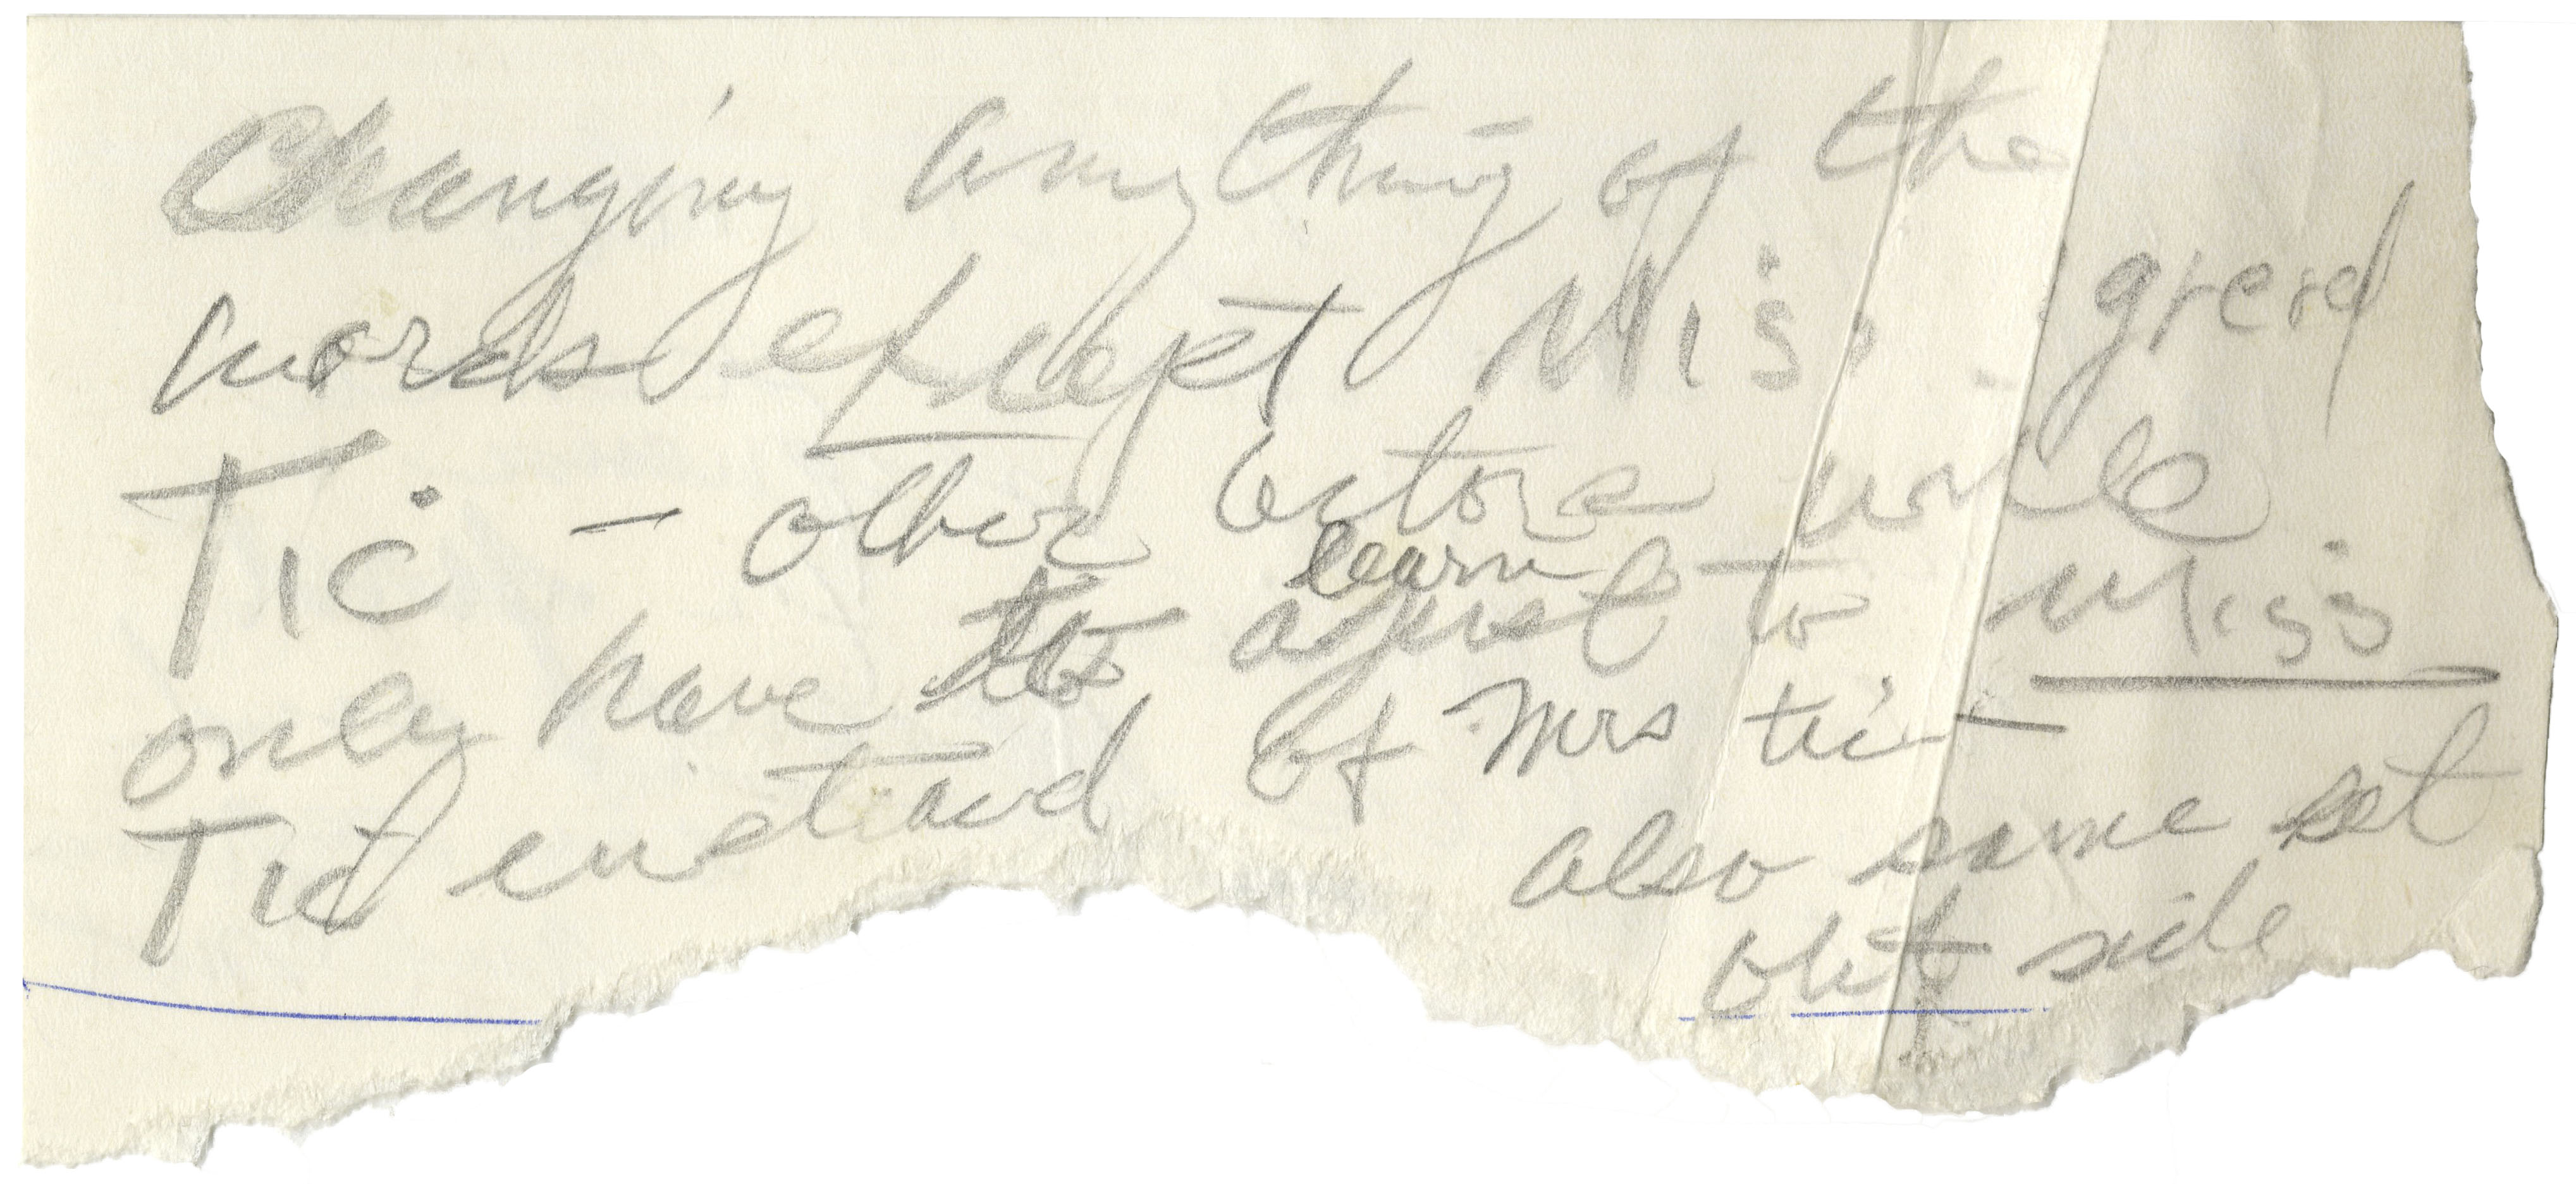 Changing anything of the
words except Mis
Tic – other actors will
only have to learn to Miss
Tic instead of Mrs tic –
also same set
out side